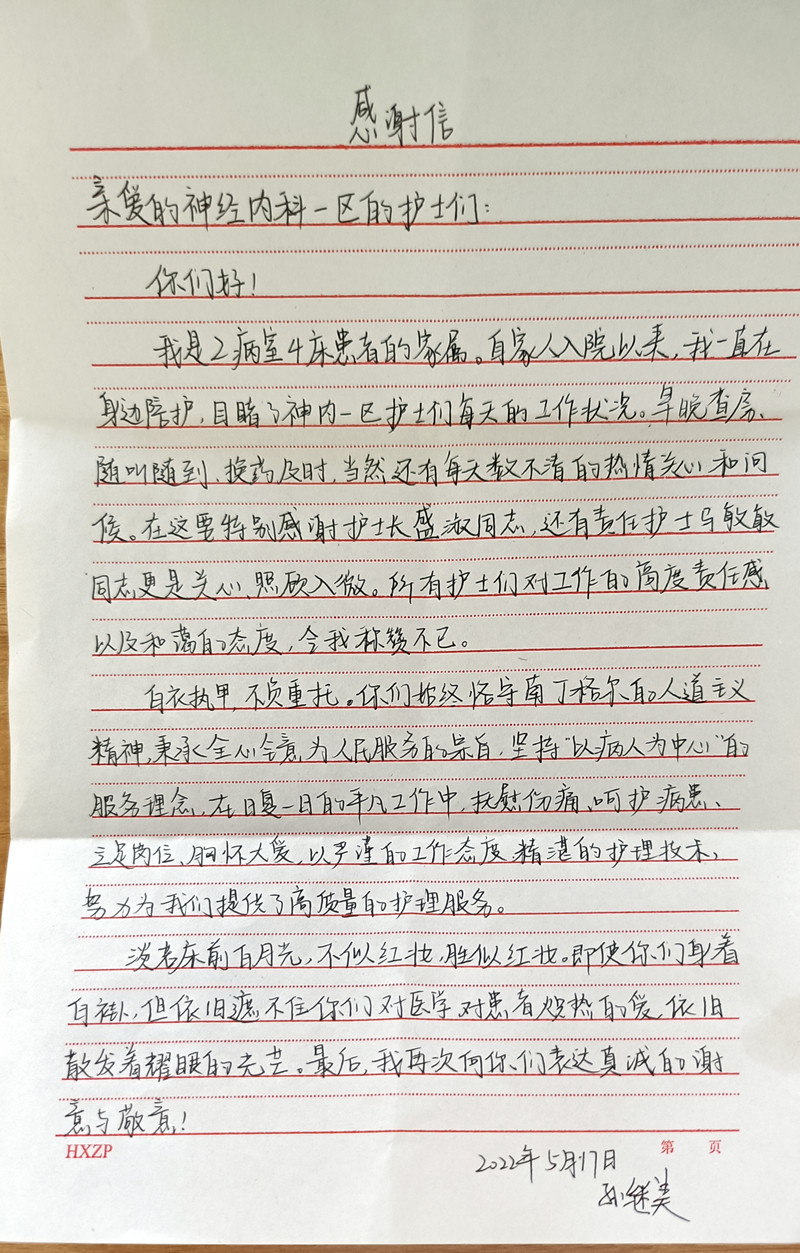 感谢信
亲爱的神经内科一区的护士们：
你们好！
我是2病室4床患者的家属。自家人入院以来，我一直在
身边陪护，目睹了神内一区护士们每天的工作状况。早晚查房、
随叫随到、换药及时，当然还有每天数不清的热情关心和问
候。在这里特别感谢护士长盛淑同志，还有责任护士马敏敏
同志更是关心、照顾入微。所有护士们对工作的高度责任感
以及和蔼的态度，令我称赞不已。
白衣执甲，不负重托。你们始终恪守南丁格尔的人道主义
精神，秉承全心全意为人民服务的宗旨，坚持“以病人为中心”的
服务理念，在日复一日的平凡工作中，抚慰伤痛、呵护病患、
立足岗位、胸怀大爱，以严谨的工作态度、精湛的护理技术，
努力为我们提供了高质量的护理服务。
淡看床前百月光，不似红妆，胜似红妆。即使你们身着
白褂，但依旧遮不住你们对医学、对患者炽热的爱，依旧
散发着耀眼的光芒。最后，我再次向你们表达真诚的谢
意与敬意！
HXZP
第 页
2022年5月17日
孙继美